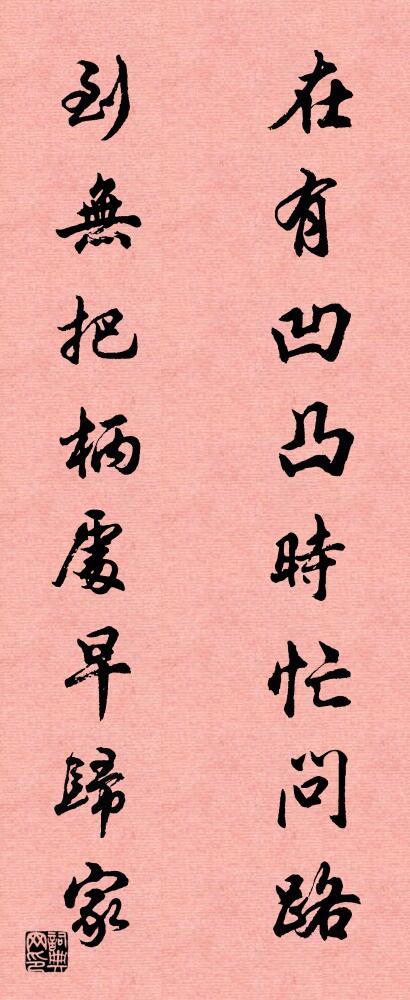 在有凹凸時忙問路
到無把柄處早歸家
詞典网印